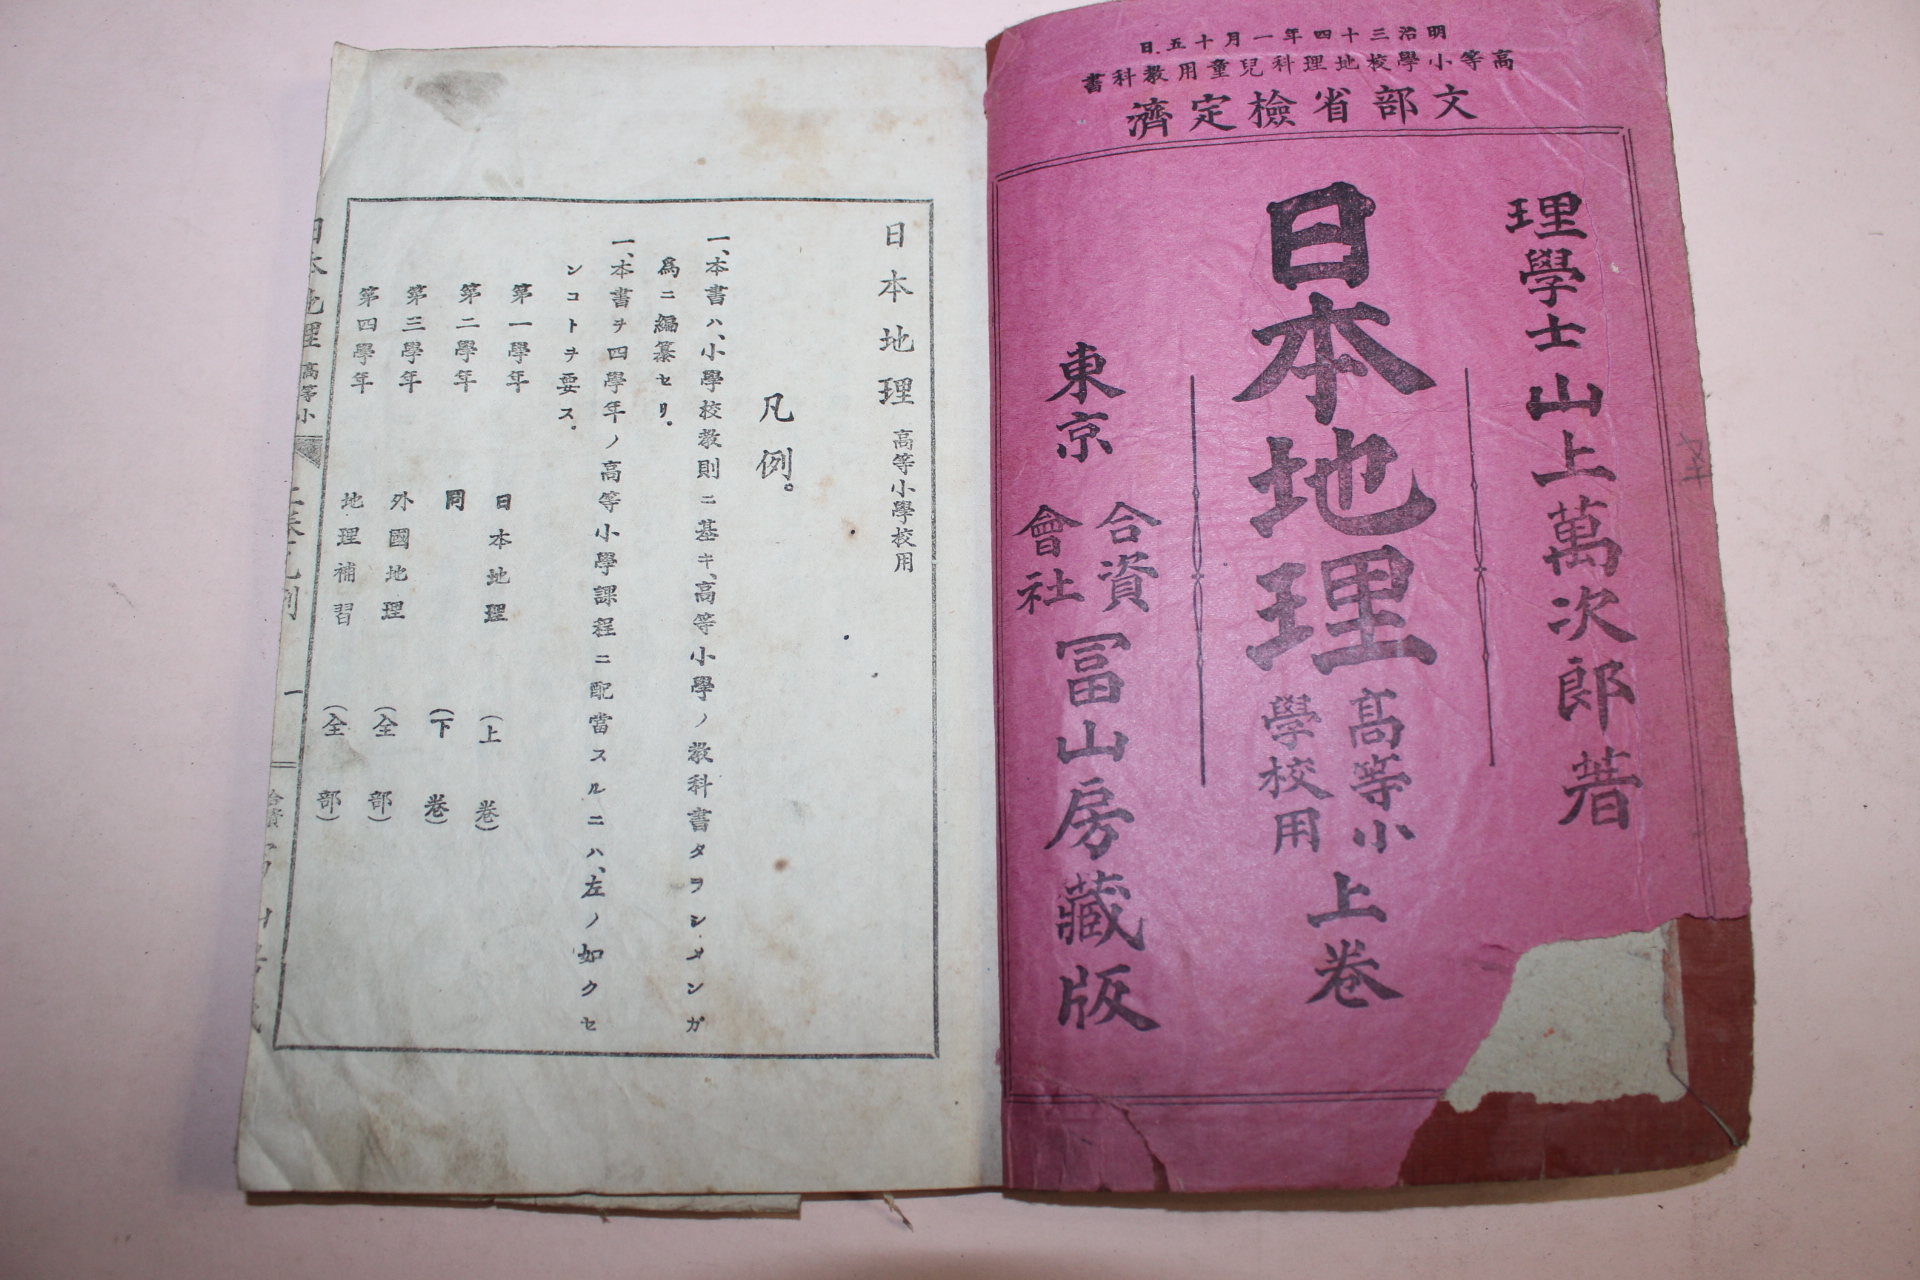 明治三十四年一月十五日
高等小學校地理科兒童用教科書
文部省檢定濟
理學士 山上萬次郎著
日本地理 高等小學校用 上卷
東京 合資會社 冨山房藏版
日本地理 高等小學校用
凡例。
一、本書ハ、小學校教則ニ基キ、高等小學ノ教科書タラシメンガ
爲ニ編纂セリ。
一、本書ヲ四學年ノ高等小學課程ニ配當スルニハ、左ノ如クセ
ンコトヲ要ス。
第一學年 日本地理 (上卷)
第二學年 同 (下卷)
第三學年 外國地理 (全部)
第四學年 地理補習 (全部)
日本地理 高等小
一